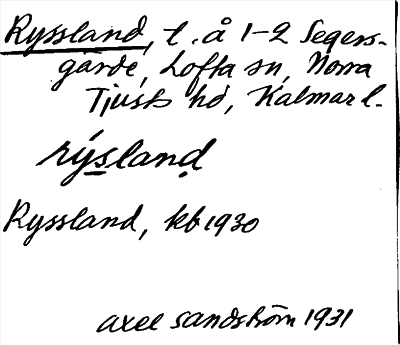 Ryssland, t. å 1-2 Segers-
gärde, Lofta sn, Norra
Tjusts hd, Kalmar l.
rýslaṇd
Ryssland, kb 1930
axel sandström 1931